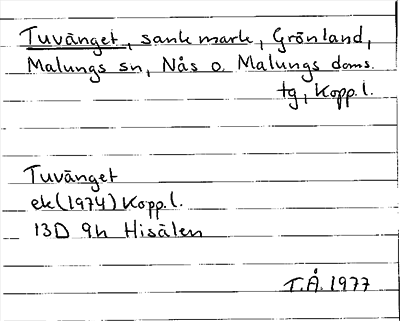 Tuvänget, sank mark, Grönland,
Malungs sn, Nås o. Malungs doms.
tg, Kopp.l.
Tuvänget
ek(1974) Kopp.l.
13D 9h Hisälen
T.Å. 1977